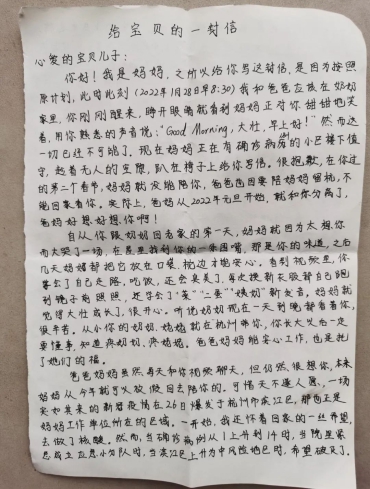 给宝贝的一封信
心爱的宝贝儿子:
你好!我是妈妈,之所以给你写这封信,是因为按照
原计划,此时此刻(2022年1月28日早8:30)我和爸爸应该在奶奶
家里,你刚刚醒来,睁开眼睛就看到妈妈正对你甜甜地笑
着,用你熟悉的声音说:"Good Morning,大壮,早上好!"然而这
一切已经不可能了,现在妈妈正在有确诊病房的小区楼下值
守,趁着无人的空隙,趴在椅子上给你写信。很抱歉,在你过
的第二个春节,妈妈就没能陪你,爸爸也因要陪妈妈留杭,不
能回家看你。实际上,爸妈从2022年元旦开始,就和你分离了,
爸妈好想好想你啊!
自从你跟奶奶回老家的第一天,妈妈就因为太想你
而大哭了一场,在
几天妈妈都把它放在口袋、枕边才能安心。看到视频里,你
学会了自己走路,吃饭,还会臭美了,每次换新衣服都自己跑
到镜子前照照,还学会了"菜""二蛋""姨奶"新发音,妈妈就
觉得大壮成长了,很开心。听说奶奶现在一天到晚都看着你,
很辛苦。从小你的奶奶、姑姑就在杭州带你,你长大也一定
要懂事,知道疼奶奶、疼姑姑。爸爸妈妈能安心工作,也是托
了她们的福。
爸爸妈妈虽然每天和你视频聊天,但仍然很想你,本来
妈妈从今年就可以放假回去陪你的。可惜天不遂人愿,一场
突如其来的新冠疫情在26日爆发于杭州市滨江区,那也正是
妈妈工作单位所在的区域。一开始,我还怀着回家的一丝希望,
去做了核酸。然而,当确诊病例从1上升到14时,当院里紧
急成立应急小分队时,当滨江区上升为中风险地区时,希望破灭了。